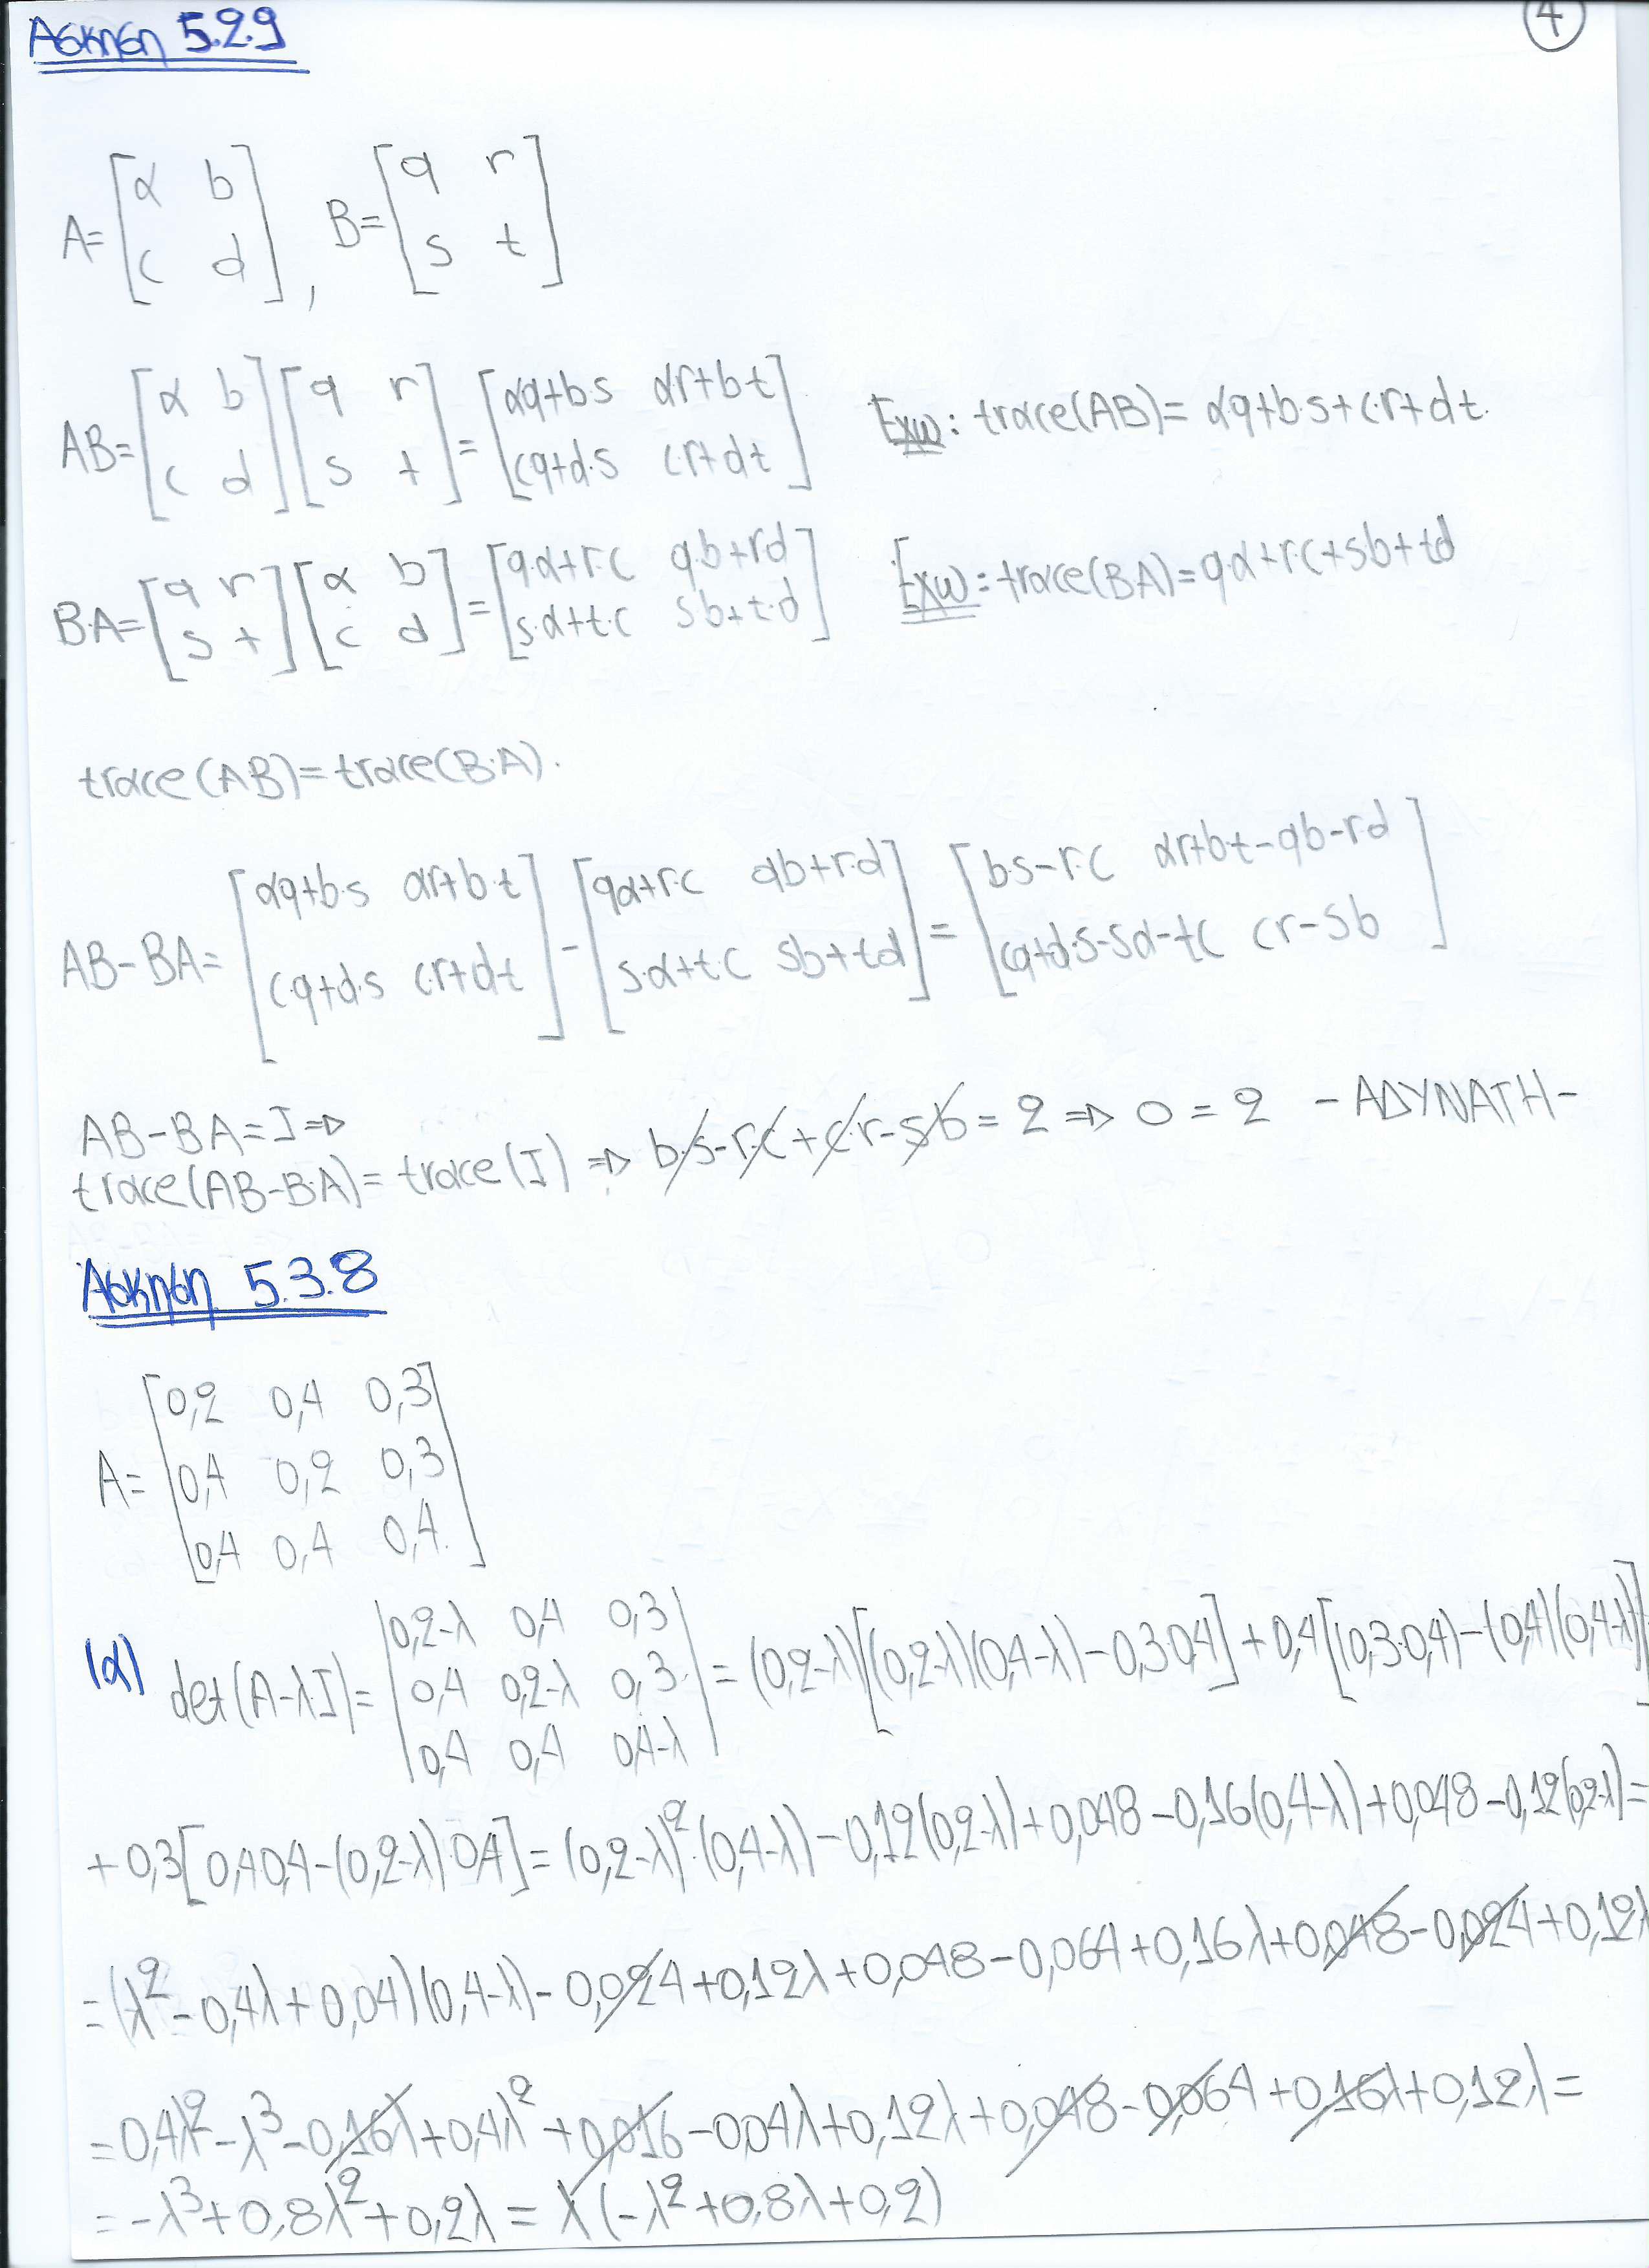 Άσκηση 5.2.9
4
A = [α b; c d], B = [q r; s t]
AB = [α b; c d] [q r; s t] = [αq+b·s αr+bt; cq+d·s cr+dt] Έχω: trace(AB) = αq+b·s+c·r+dt.
B·A = [q r; s t] [α b; c d] = [q·α+r·c q·b+rd; s·α+t·c s·b+t·d] Έχω: trace(BA) = q·α+r·c+sb+td
trace(AB) = trace(B·A).
AB-BA = [αq+b·s αr+b·t; c·q+d·s cr+dt] - [qα+r·c qb+r·d; s·α+t·c sb+td] = [b·s-r·c αr+bt-qb-rd; cq+d·s-sα-tc cr-sb]
AB-BA = I ⇒
trace(AB-B·A) = trace(I) ⇒ b·s-r·c+c·r-sb = 2 ⇒ 0 = 2 - ΑΔΥΝΑΤΗ -
Άσκηση 5.3.8
A = [0,2 0,4 0,3; 0,4 0,2 0,3; 0,4 0,4 0,4]
(α) det(A-λ·I) = |0,2-λ 0,4 0,3; 0,4 0,2-λ 0,3; 0,4 0,4 0,4-λ| = (0,2-λ)[(0,2-λ)(0,4-λ)-0,3·0,4] + 0,4[(0,3·0,4)-(0,4)(0,4-λ)]
+ 0,3[0,4·0,4-(0,2-λ)·0,4] = (0,2-λ)²·(0,4-λ)-0,12(0,2-λ)+0,048-0,16(0,4-λ)+0,048-0,12(0,2-λ) =
= (λ²-0,4λ+0,04)(0,4-λ)-0,024+0,12λ+0,048-0,064+0,16λ+0,048-0,024+0,12λ
= 0,4λ²-λ³-0,16λ+0,4λ²+0,016-0,04λ+0,12λ+0,048-0,064+0,16λ+0,12λ =
= -λ³+0,8λ²+0,2λ = λ(-λ²+0,8λ+0,2)